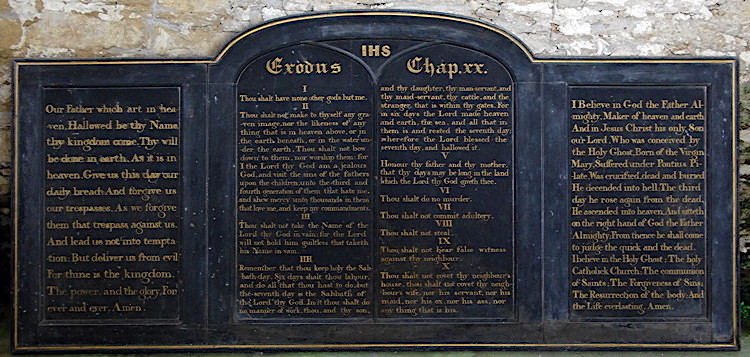 IHS
Exodus Chap.xx.
Our Father which art in hea-
ven, Hallowed be thy Name,
thy kingdom come, Thy will
be done in earth, As it is in
heaven. Give us this day our
daily bread: And forgive us
our trespasses, As we forgive
them that trespass against us.
And lead us not into tempta-
tion: But deliver us from evil
For thine is the kingdom,
The power, and the glory, for
ever and ever, Amen.
I
Thou shalt have none other gods but me.
II
Thou shalt not make to thyself any gra-
ven image, nor the likeness of any
thing that is in heaven above, or in
the earth beneath, or in the water un-
der the earth. Thou shalt not bow
down to them, nor worship them: for
I the Lord thy God am a jealous
God, and visit the sins of the fathers
upon the children, unto the third and
fourth generation of them that hate me,
and shew mercy unto thousands in them
that love me, and keep my commandments.
III
Thou shalt not take the Name of the
Lord thy God in vain: for the Lord
will not hold him guiltless that taketh
his Name in vain.
IIII
Remember that thou keep holy the Sab-
bath-day. Six days shalt thou labour,
and do all that thou hast to do, but
the seventh day is the Sabbath of
the Lord thy God. In it thou shalt do
no manner of work, thou, and thy son,
and thy daughter, thy man-servant, and
thy maid-servant, thy cattle, and the
stranger, that is within thy gates. For
in six days the Lord made heaven
and earth, the sea, and all that in
them is, and rested the seventh day;
wherefore the Lord blessed the
seventh day, and hallowed it.
V
Honour thy father and thy mother;
that thy days may be long in the land
which the Lord thy God giveth thee.
VI
Thou shalt do no murder.
VII
Thou shalt not commit adultery.
VIII
Thou shalt not steal.
IX
Thou shalt not bear false witness
against thy neighbour.
X
Thou shalt not covet thy neighbour's
house, thou shalt not covet thy neigh-
bour's wife, nor his servant, nor his
maid, nor his ox, nor his ass, nor
any thing that is his.
I Believe in God the Father Al-
mighty, Maker of heaven and earth
And in Jesus Christ his only Son
our Lord, Who was conceived by
the Holy Ghost, Born of the Virgin
Mary, Suffered under Pontius Pi-
late, Was crucified, dead and buried
He decended into hell; The third
day he rose again from the dead,
He ascended into heaven, And sitteth
on the right hand of God the Father
Almighty; From thence he shall come
to judge the quick and the dead.
I believe in the Holy Ghost; The holy
Catholick Church; The communion
of Saints; The Forgiveness of Sins;
The Resurrection of the body: And
the Life everlasting. Amen.